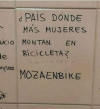 ¿PAIS DONDE
MÁS MUJERES
MONTAN EN
BICICLETA?
MOZAENBIKE